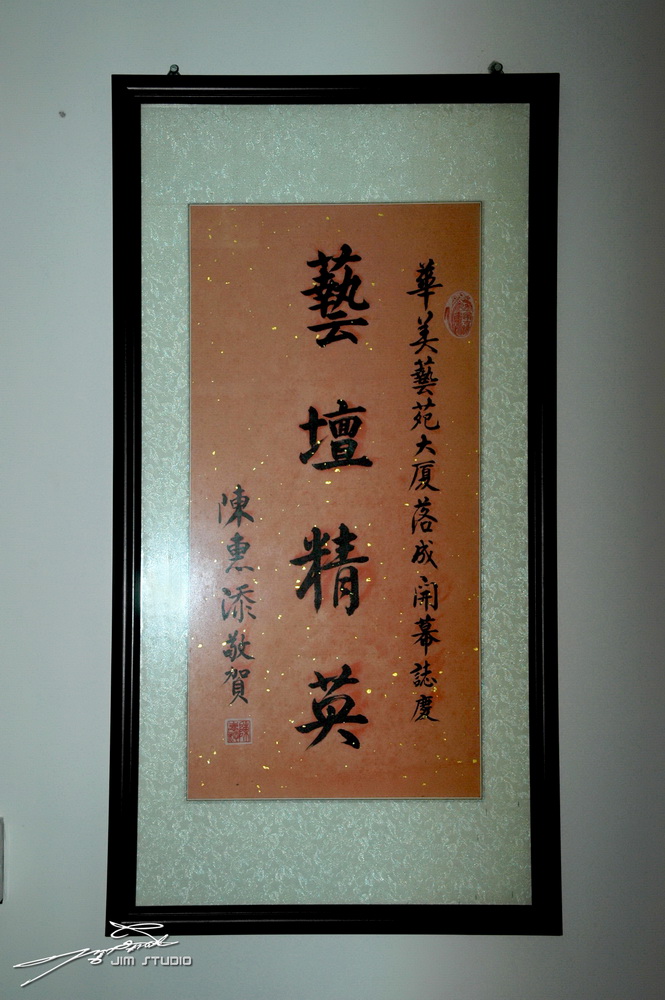 華美藝苑大厦落成開幕誌慶
藝壇精英
陳惠添敬賀
JIM STUDIO